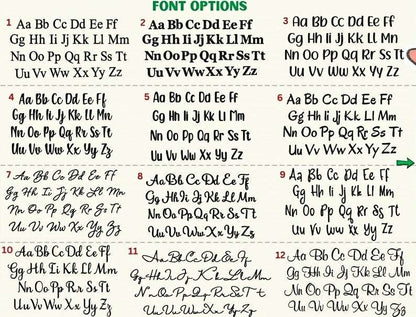 FONT OPTIONS
1 Aa Bb Cc Dd Ee Ff
Gg Hh Ii Jj Kk Ll Mm
Nn Oo Pp Qq Rr Ss Tt
Uu Vv Ww Xx Yy Zz
2 Aa Bb Cc Dd Ee Ff
Gg Hh Ii Jj Kk Ll Mm
Nn Oo Pp Qq Rr Ss Tt
Uu Vv Ww Xx Yy Zz
3 Aa Bb Cc Dd Ee Ff
Gg Hh Ii Jj Kk Ll Mm
Nn Oo Pp Qq Rr Ss Tt
Uu Vv Ww Xx Yy Zz
4 Aa Bb Cc Dd Ee Ff
Gg Hh Ii Jj Kk Ll Mm
Nn Oo Pp Qq Rr Ss Tt
Uu Vv Ww Xx Yy Zz
5 Aa Bb Cc Dd Ee Ff
Gg Hh Ii Jj Kk Ll Mm
Nn Oo Pp Qq Rr Ss Tt
Uu Vv Ww Xx Yy Zz
6 Aa Bb Cc Dd Ee Ff
Gg Hh Ii Jj Kk Ll Mm
Nn Oo Pp Qq Rr Ss Tt
Uu Vv Ww Xx Yy Zz
7 Aa Bb Cc Dd Ee Ff
Gg Hh Ii Jj Kk Ll Mm
Nn Oo Pp Qq Rr Ss Tt
Uu Vv Ww Xx Yy Zz
8 Aa Bb Cc Dd Ee Ff
Gg Hh Ii Jj Kk Ll Mm
Nn Oo Pp Qq Rr Ss Tt
Uu Vv Ww Xx Yy Zz
9 Aa Bb Cc Dd Ee Ff
Gg Hh Ii Jj Kk Ll Mm
Nn Oo Pp Qq Rr Ss Tt
Uu Vv Ww Xx Yy Zz
10 Aa Bb Cc Dd Ee Ff
Gg Hh Ii Jj Kk Ll Mm
Nn Oo Pp Qq Rr Ss Tt
Uu Vv Ww Xx Yy Zz
11 Aa Bb Cc Dd Ee Ff
Gg Hh Ii Jj Kk Ll Mm
Nn Oo Pp Qq Rr Ss Tt
Uu Vv Ww Xx Yy Zz
12 Aa Bb Cc Dd Ee Ff
Gg Hh Ii Jj Kk Ll Mm
Nn Oo Pp Qq Rr Ss Tt
Uu Vv Ww Xx Yy Zz